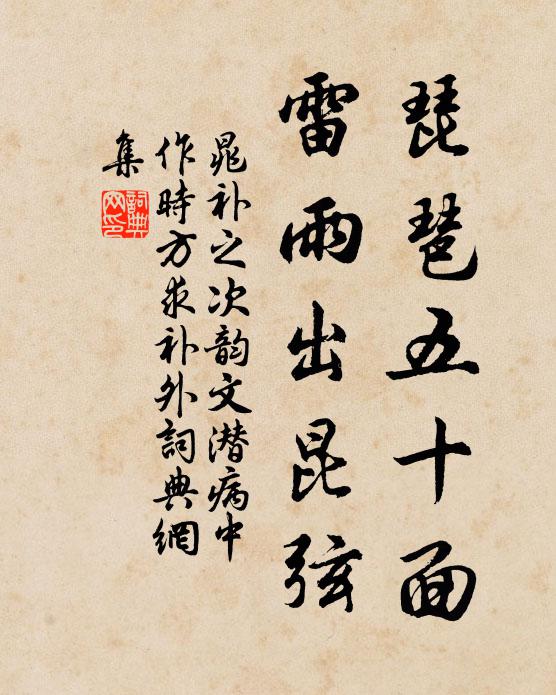 琵琶五十面
雷雨出昆弦
晁补之次韵文潜病中
作時方求补外詞典網
集
詞典
网印